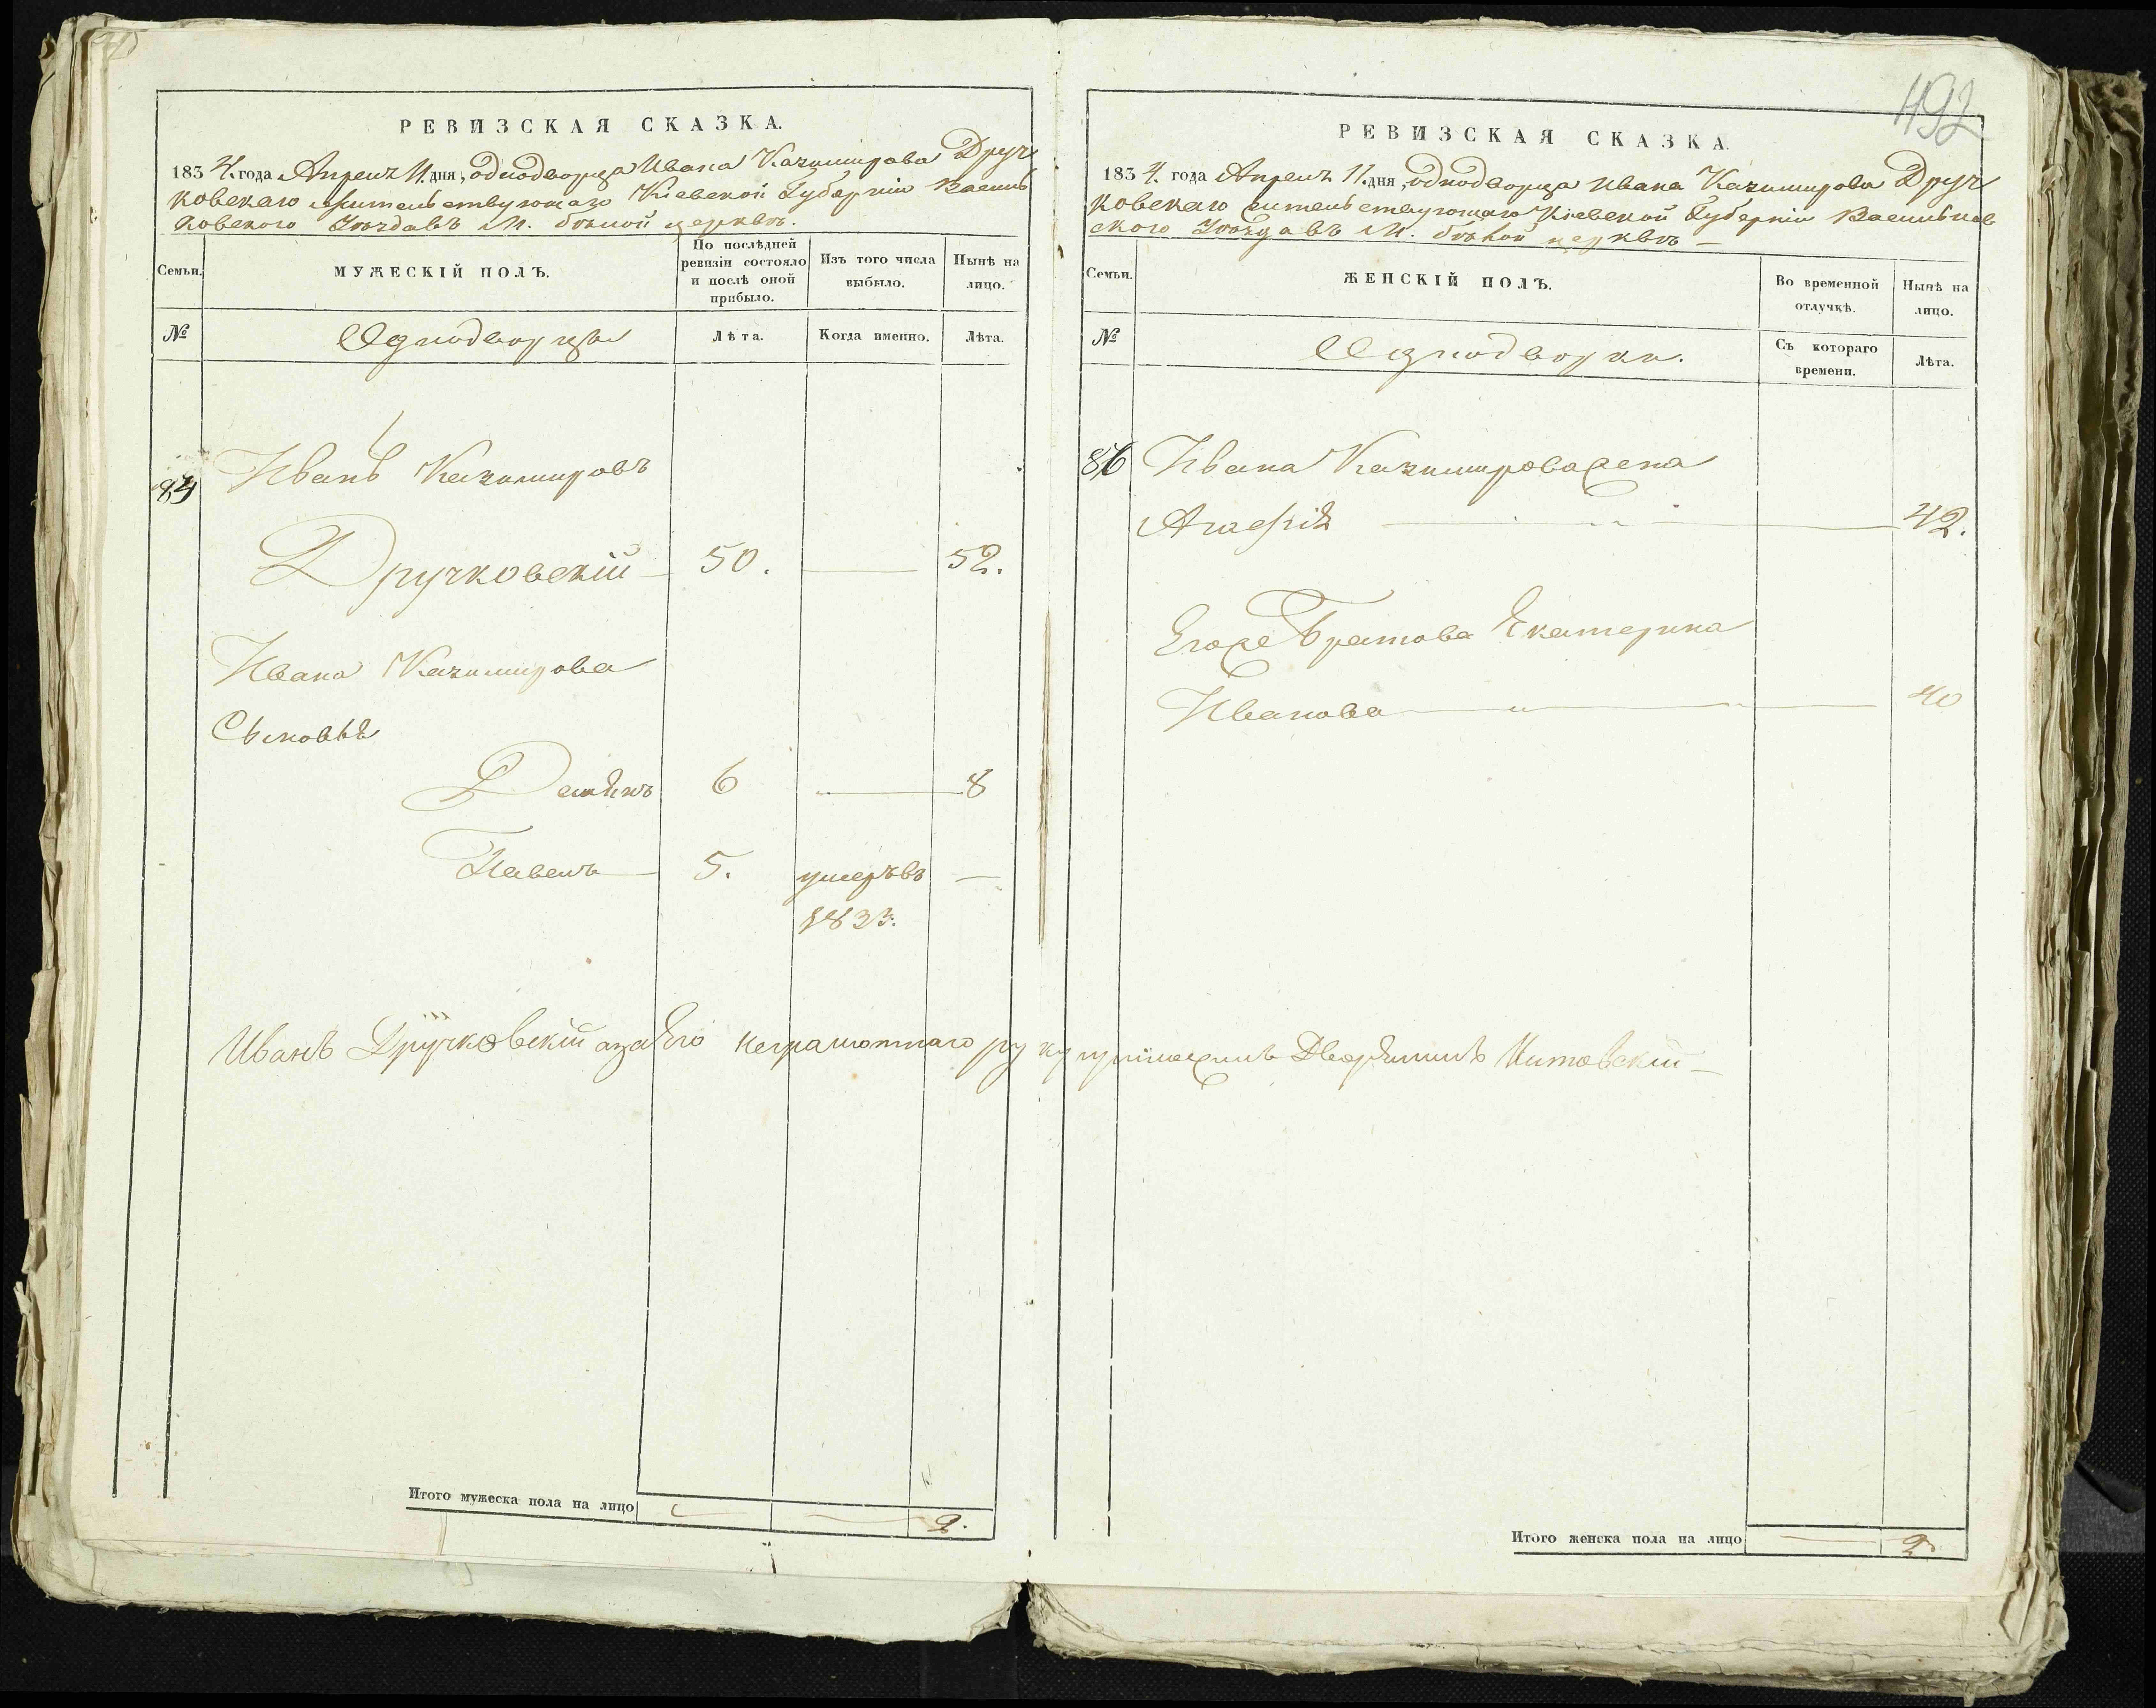 492
РЕВИЗСКАЯ СКАЗКА.
1834. года Апреля 11. дня, однодворца Ивана Казимирова Друч
ковскаго жительствующаго Кіевской Губерніи Василь
ковского Уѣзда въ М. бѣлой церквѣ.
Семьи.
МУЖЕСКІЙ ПОЛЪ.
По послѣдней ревизіи состояло и послѣ оной прибыло.
Изъ того числа выбыло.
Нынѣ на лицо.
№
Однодворцы
Лѣта.
Когда именно.
Лѣта.
84
Иванъ Казимировъ
Дручковскій 50. 52.
Ивана Казимирова
Сыновья
Демянъ 6 8
Павелъ 5. умеръ въ —
1833.
Иванъ Дручковскій а за Его неграмотнаго руку приложилъ Дворянинъ Китовскій
Итого мужеска пола на лицо 2.
РЕВИЗСКАЯ СКАЗКА.
1834. года Апреля 11. дня, однодворца Ивана Казимирова Друч
ковскаго жительствующаго Кіевской Губерніи Васильков
ского Уѣзда въ М. бѣлой церквѣ —
Семьи.
ЖЕНСКІЙ ПОЛЪ.
Во временной отлучкѣ.
Нынѣ на лицо.
№
Однодворки.
Съ котораго времени.
Лѣта.
86
Ивана Казимирова жена
Агафія 42.
Егоже Братова Екатерина
Иванова 40
Итого женска пола на лицо 2